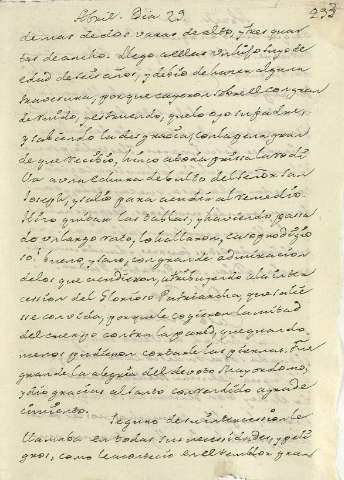 Abril. Dia 29
233
de mas de dos varas de alto, y tres quar
tas de ancho. Llego a ellas un hijo suyo de
edad de seis años, y debio de hacer alguna
travesura, porque cayeron sobre el con gran
de ruido, y estruendo, que lo oyo su padre,
y sabiendo la desgracia, con la pena gran
de que recibio, hinco a toda prissa la rodi
lla a una echura de bulto del Señor San
Joseph, y salio para acudir al remedio.
Hizo quitar las tablas, y haviendo passa
do un largo rato, lo hallaron, caso prodigio
so! bueno, y sano, con grande admiracion
de los que acudieron, atribuyendo a la inter
cession del Glorioso Patriarcha, que salie
sse con vida, porque le cogieron la mitad
del cuerpo contra la pared, y que quando
menos pudieron cortarle las piernas. Fue
grande la alegria del devoto Mayordomo,
y dio gracias al santo con rendido agrade
cimiento.
Seguro de su intercession le
llamaba en todas sus necesidades, y peli
gros, como le acontecio en el temblor gran